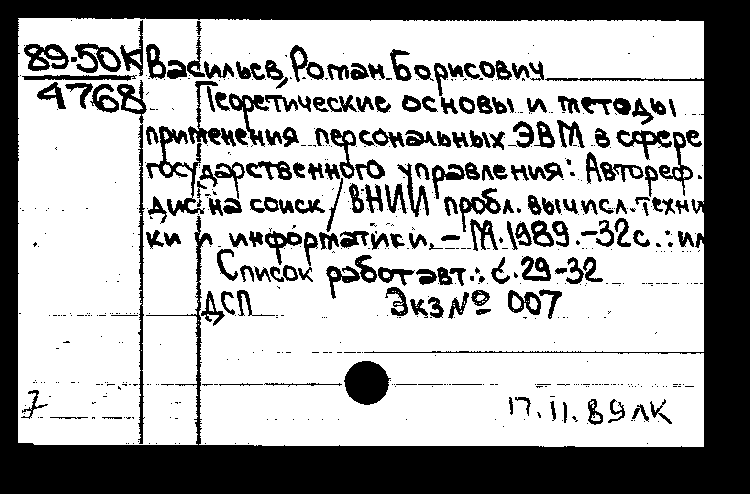 89-50К Васильев, Роман Борисович
4768 Теоретические основы и методы
применения персональных ЭВМ в сфере
государственного управления: Автореф.
дис. на соиск. / ВНИИ пробл. вычисл. техни
ки и информатики. – М. 1989. – 32 с. : ил
Список работ авт.: с. 29-32
ДСП Экз № 007
7 17.11.89 ЛК